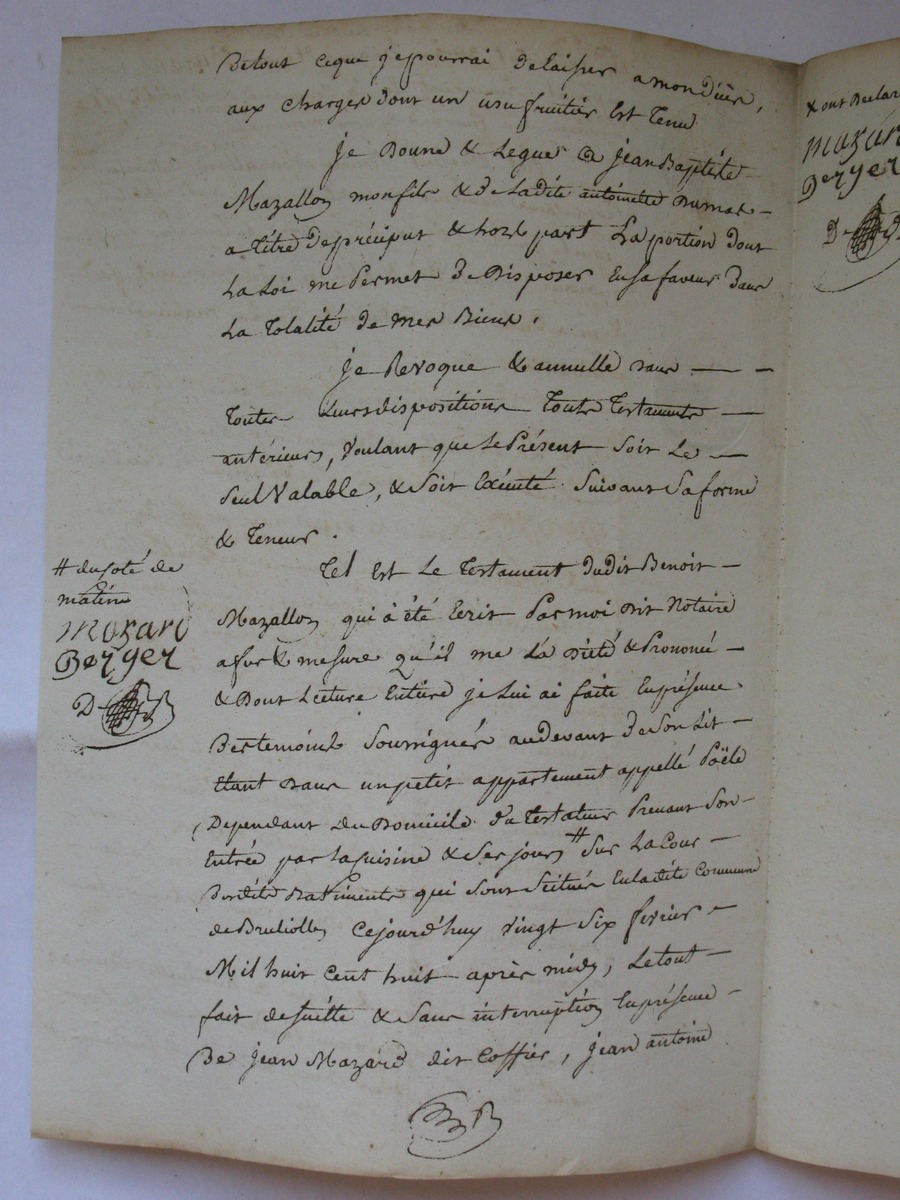 De tout ce que je pourrai delaisser a mon Décès,
aux charges dont un usufruitier Est Tenu
je Donne & Legue a jean Baptiste
Mazallon mon fils & de Ladite antoinette Dumas
a titre de préciput & hors part La portion dont
La Loi me Permet de Disposer En sa faveur dans
La Totalité de mes Biens.
je Revoque & annulle dans
Toutes Leurs dispositions Touts Testaments
antérieurs, Voulant que Le Présent Soit Le
Seul Valable, & Soit Exécuté Suivant Sa forme
& Teneur.
Tel Est Le Testament dudit Benoit
Mazallon qui à été Ecrit Par moi dit Notaire
a fur & mesure qu'il me L'a Dicté & Prononcé
& Dont Lecture Entière je Lui ai faite En présence
Des temoins Soussignés au devant de Son Lit
Etant dans un petit appartement appellé Poële
Dependant du Domicile du Testateur Prenant Son
Entrée par la cuisine & Ses jours # Sur La Cour
Desdits Batiments qui Sont Scitués En ladite Commune
de Brullioles cejourd'huy vingt Six fevrier
Mil huit cent huit après midy, Le tout
fait de suitte & Sans interruption En présence
De jean Mazard dit Coffier, jean antoine
# du coté de
matin
Mozard
Berger
D
x ont Declar
Mozar
Berger
D